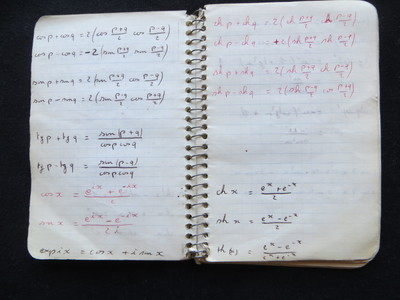 cos p + cos q = 2 (cos \frac{p+q}{2} cos \frac{p-q}{2})
cos p - cos q = -2 (sin \frac{p+q}{2} sin \frac{p-q}{2})
sin p + sin q = 2 (sin \frac{p+q}{2} cos \frac{p-q}{2})
sin p - sin q = 2 (sin \frac{p-q}{2} cos \frac{p+q}{2})
tg p + tg q = \frac{sin(p+q)}{cos p cos q}
tg p - tg q = \frac{sin(p-q)}{cos p cos q}
cos x = \frac{e^{ix} + e^{-ix}}{2}
sin x = \frac{e^{ix} - e^{-ix}}{2i}
exp ix = cos x + i sin x
ch p + ch q = 2 (ch \frac{p+q}{2} ch \frac{p-q}{2})
ch p - ch q = +2 (sh \frac{p+q}{2} sh \frac{p-q}{2})
sh p + sh q = 2 (sh \frac{p+q}{2} ch \frac{p-q}{2})
sh p - sh q = 2 (sh \frac{p-q}{2} \frac{p+q}{2})
ch x = \frac{e^x + e^{-x}}{2}
sh x = \frac{e^x - e^{-x}}{2}
th(x) = \frac{e^x - e^{-x}}{e^x + e^{-x}}